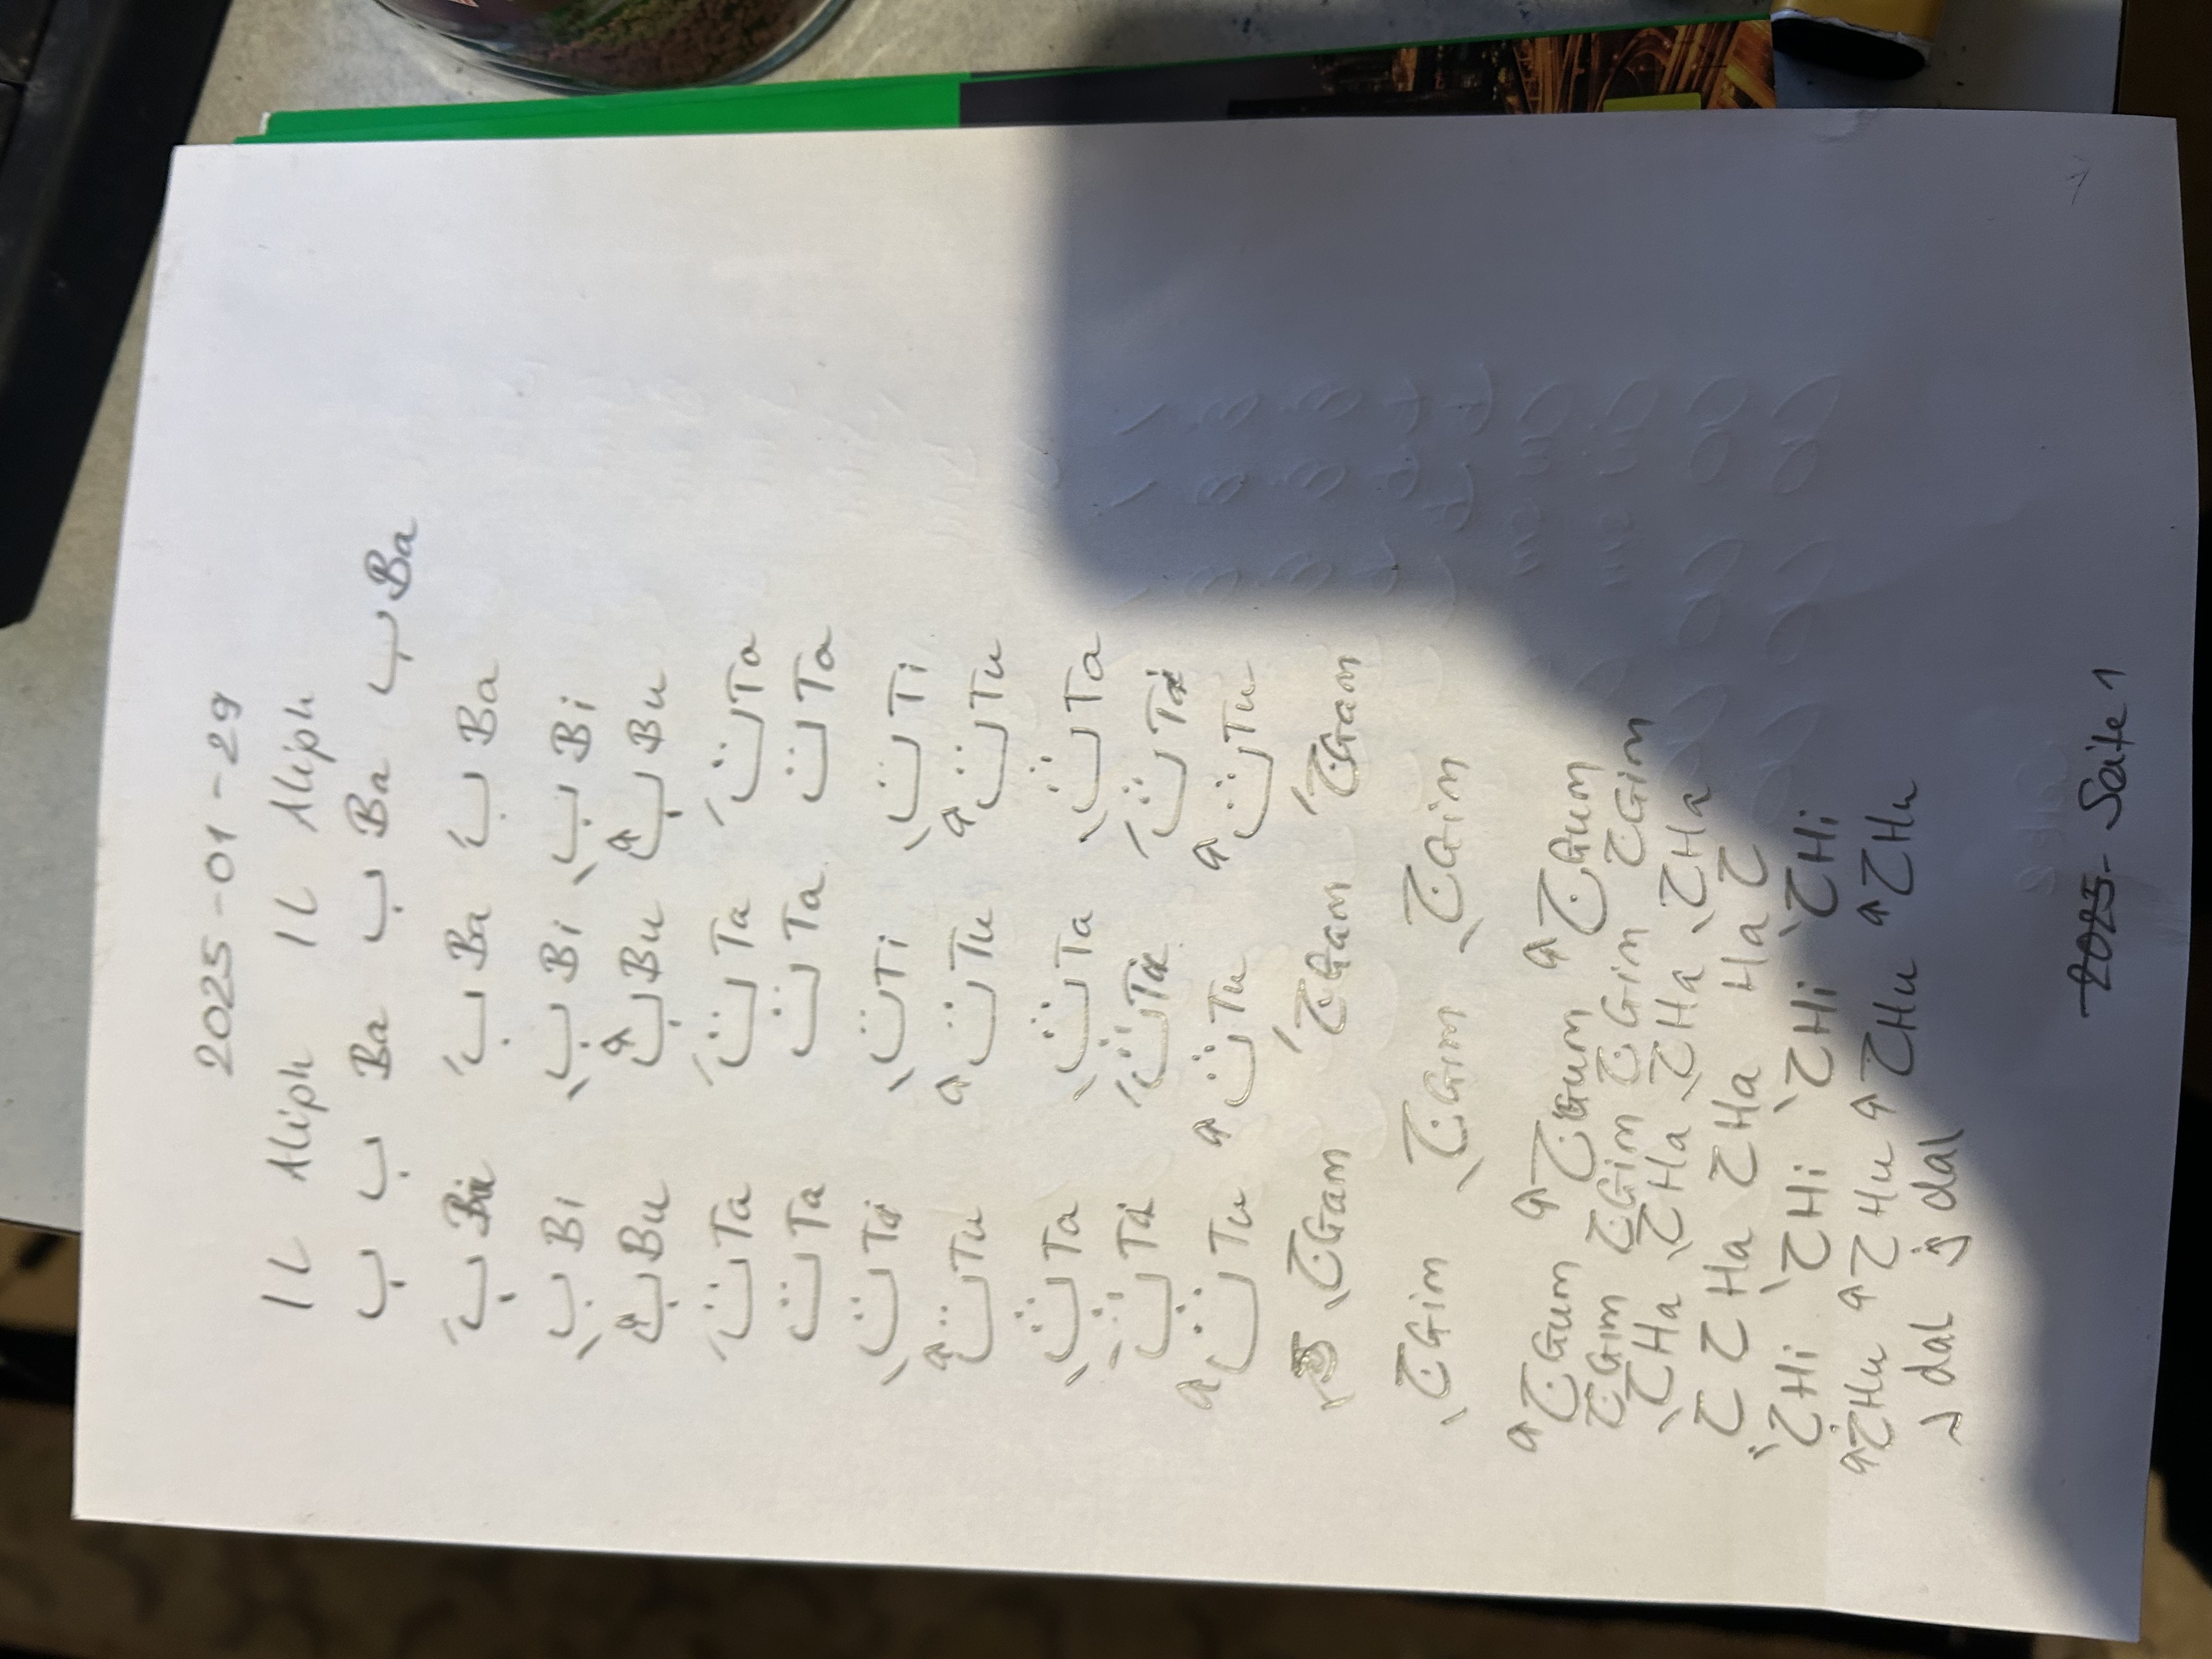 2025-01-29
ا L Aliph ا L Aliph
ب ب ب Ba ب Ba ب Ba
بَ Ba بَ Ba بَ Ba
بِ Bi بِ Bi بِ Bi
بُ Bu بُ Bu بُ Bu
تَ Ta تَ Ta تَ Ta
ت Ta ت Ta ت Ta
تِ Ti تِ Ti تِ Ti
تُ Tu تُ Tu تُ Tu
ثَ Ta ثَ Ta ثَ Ta
ثِ Ti
ثُ Tu ثُ Tu ثُ Tu
جَ Gam جَ Gam جَ Gam
جِ Gim جِ Gim جِ Gim
جُ Gum جُ Gum جُ Gum
ج Gim ج Gim ج Gim ح Gim
حَ Ha حَ Ha حَ Ha حَ Ha
ح ح Ha ح Ha Ha ح
حِ Hi حِ Hi حِ Hi حِ Hi
حُ Hu حُ Hu حُ Hu حُ Hu
د dal د dal
2025- Seite 1